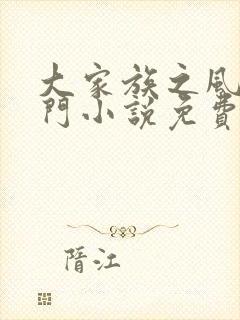 大家族之風
門小說免費
晉江